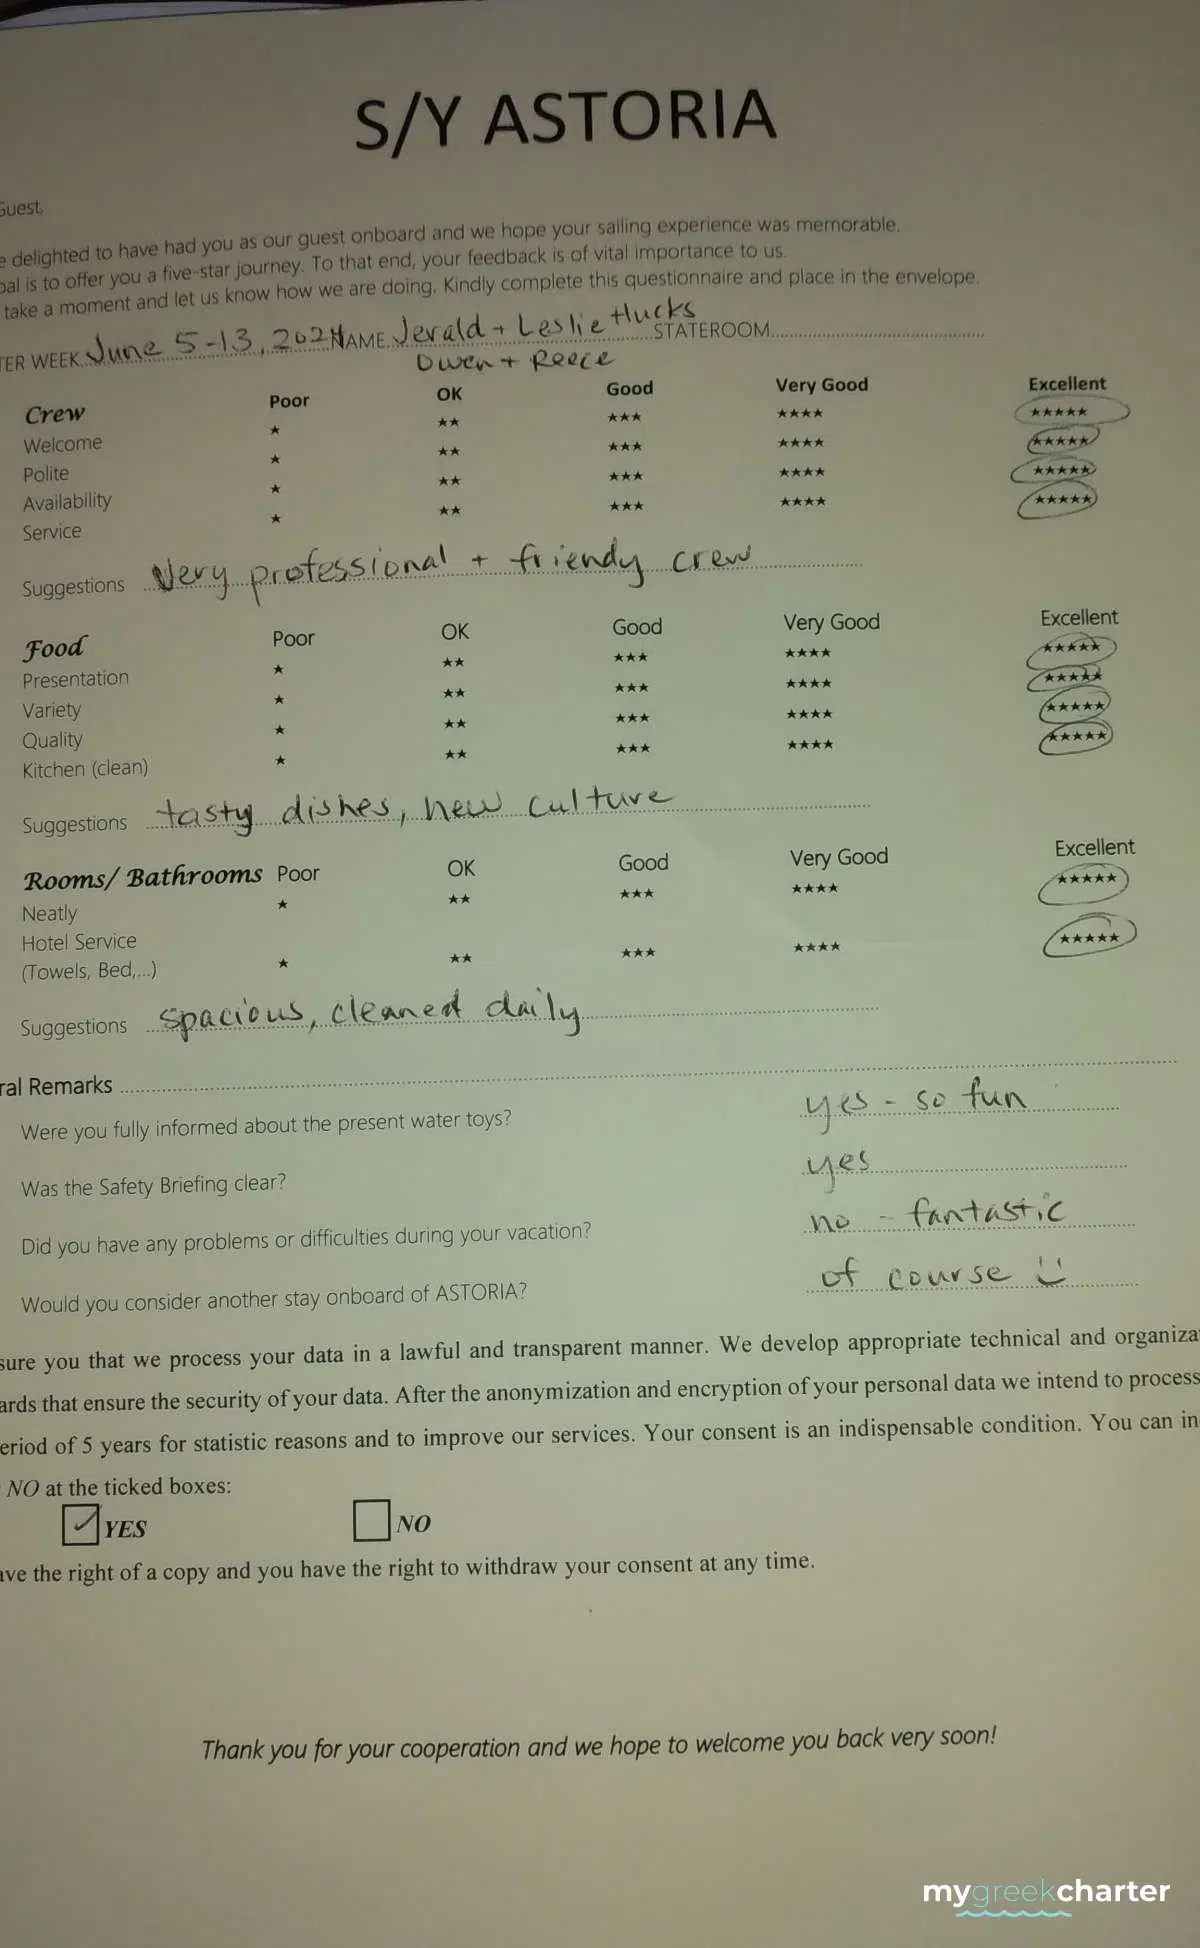 S/Y ASTORIA
Guest,
e delighted to have had you as our guest onboard and we hope your sailing experience was memorable.
oal is to offer you a five-star journey. To that end, your feedback is of vital importance to us.
take a moment and let us know how we are doing. Kindly complete this questionnaire and place in the envelope.
TER WEEK June 5-13, 2024 NAME Jerald + Leslie Hucks STATEROOM
Owen + Reece
Crew Poor OK Good Very Good Excellent
Welcome ★ ★★ ★★★ ★★★★ ★★★★★
Polite ★ ★★ ★★★ ★★★★ ★★★★★
Availability ★ ★★ ★★★ ★★★★ ★★★★★
Service ★ ★★ ★★★ ★★★★ ★★★★★
Suggestions Very professional + friendy crew
Food Poor OK Good Very Good Excellent
Presentation ★ ★★ ★★★ ★★★★ ★★★★★
Variety ★ ★★ ★★★ ★★★★ ★★★★★
Quality ★ ★★ ★★★ ★★★★ ★★★★★
Kitchen (clean) ★ ★★ ★★★ ★★★★ ★★★★★
Suggestions tasty dishes, new culture
Rooms/ Bathrooms Poor OK Good Very Good Excellent
Neatly ★ ★★ ★★★ ★★★★ ★★★★★
Hotel Service
(Towels, Bed,...) ★ ★★ ★★★ ★★★★ ★★★★★
Suggestions spacious, cleaned daily
ral Remarks
Were you fully informed about the present water toys? yes - so fun
Was the Safety Briefing clear? yes
Did you have any problems or difficulties during your vacation? no - fantastic
Would you consider another stay onboard of ASTORIA? of course
sure you that we process your data in a lawful and transparent manner. We develop appropriate technical and organiza
ards that ensure the security of your data. After the anonymization and encryption of your personal data we intend to process
eriod of 5 years for statistic reasons and to improve our services. Your consent is an indispensable condition. You can in
NO at the ticked boxes:
YES NO
ave the right of a copy and you have the right to withdraw your consent at any time.
Thank you for your cooperation and we hope to welcome you back very soon!
mygreekcharter